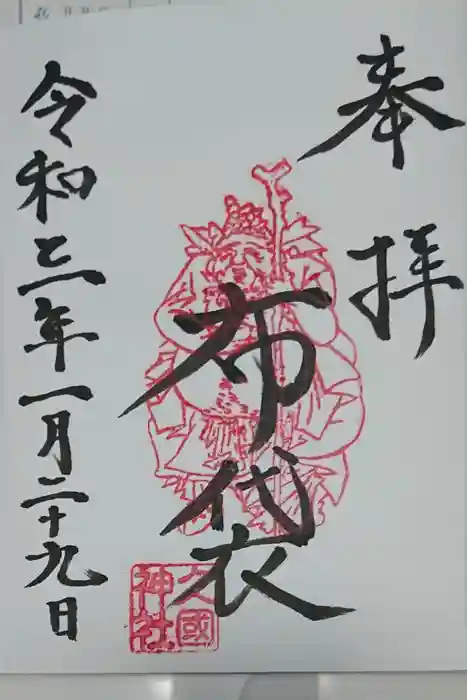 奉拝
布袋
大國神社
令和三年一月二十九日